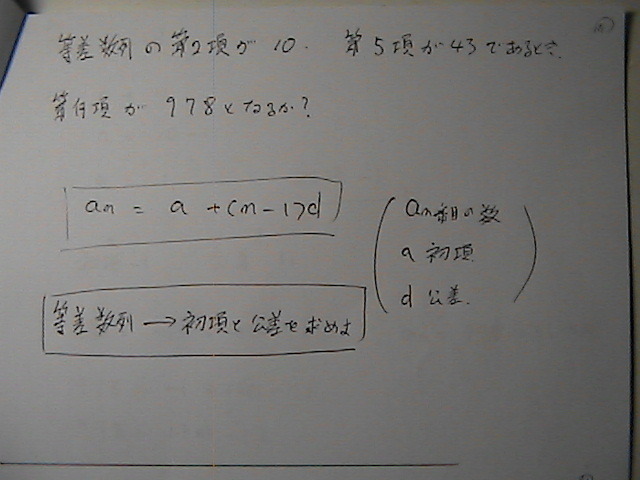 等差数列の第2項が 10. 第5項が43であるとき.
第何項が 978となるか?
an = a + (n-1)d
an n番目の数
a 初項
d 公差.
等差数列 → 初項と公差を求めよ